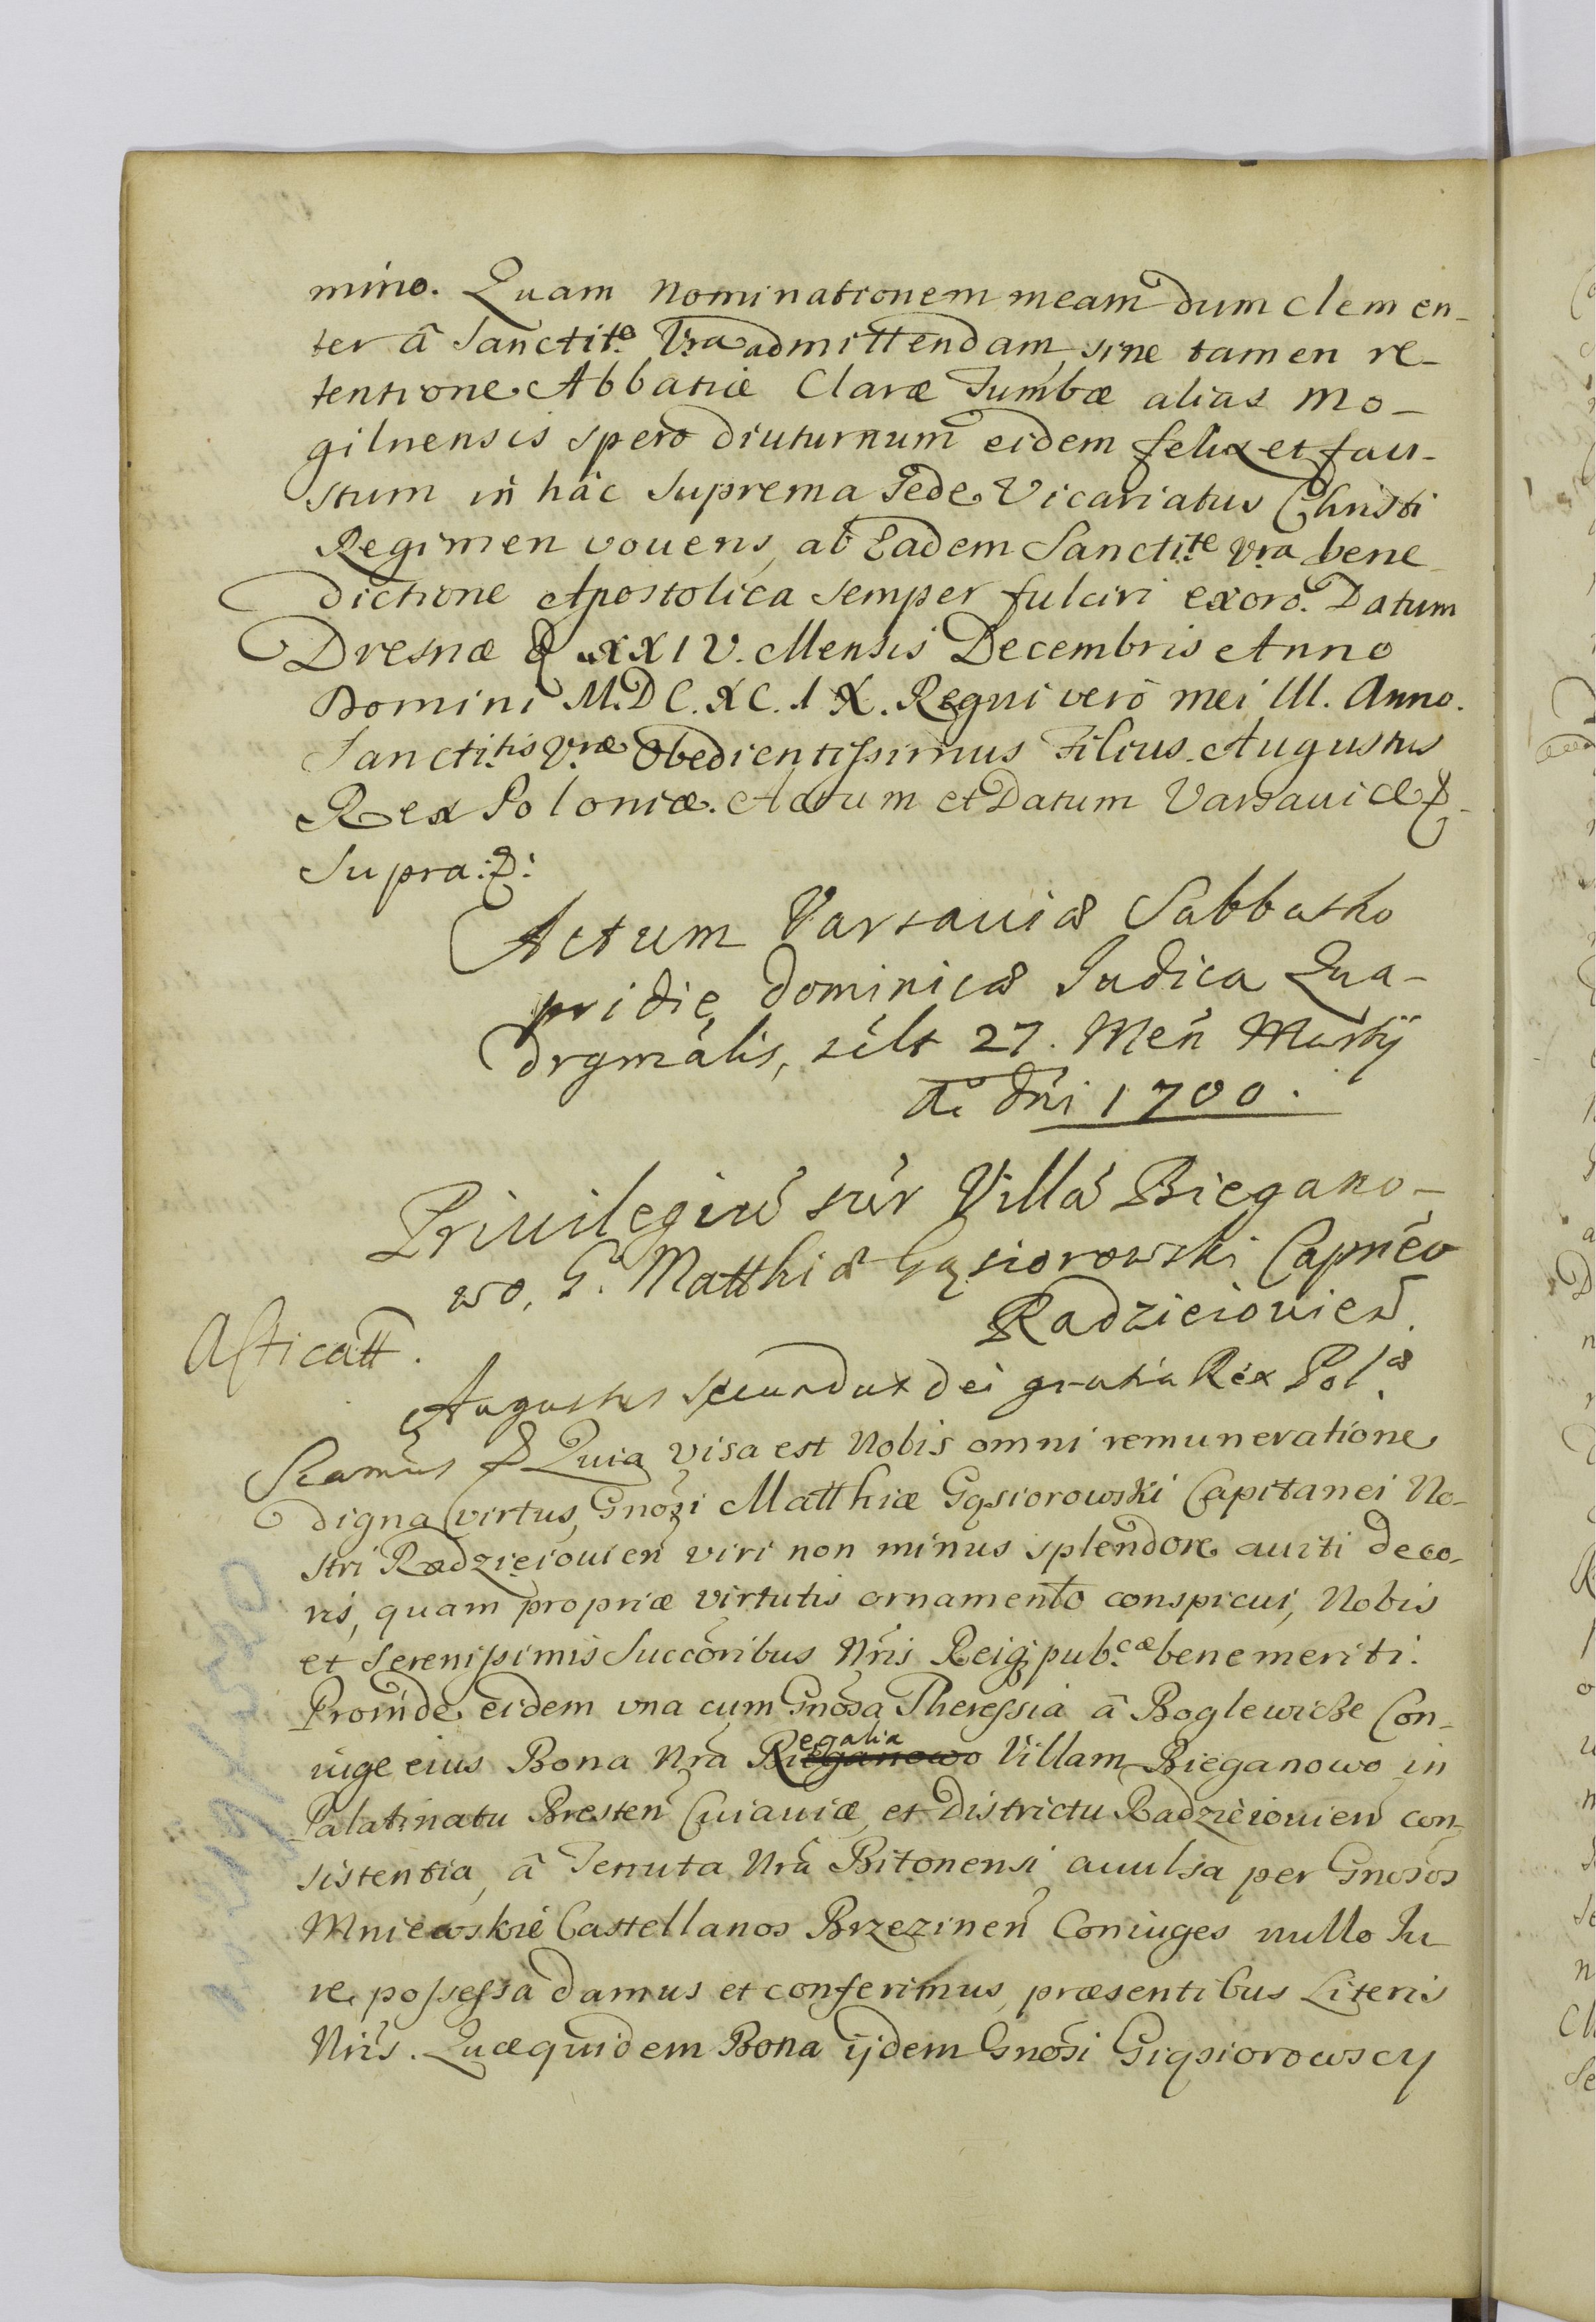 mino. Quam nominationem meam dum clemen-
ter â Sanctit.e Vra admittendam, sine tamen re-
tentione Abbatiæ Claræ Tumbæ alias Mo-
gilnensis spero diuturnum eidem felix et fau-
stum in hâc Suprema Sede Vicariatus Christi
Regimen vouens, ab Eadem Sanctit.te Vra bene
dictione Apostolica semper fulciri exoro. Datum
Dresnæ D XXIV. Mensis Decembris Anno
Domini M.D C. XC. IX. Regni verò mei III. Anno.
Sanctit.tis Vræ Obedientissimus Filius Augustus
Rex Poloniæ. Actum et Datum Varsauiæ &
Supra: &:
Actum Varsauiæ Sabbatho
pridie Dominicæ Judica Qua-
drgmális, sclt 27. Men Martij
Ao Dni 1700.
Priuilegiu sur Villa Biegano-
wo, G. Matthiæ Gąsiorowski Capneo
Radzieiouien.
Asticatt.
Augustus Secundus Dei gratia Rex Pol.æ
Scamus & Quia visa est Nobis omni remuneratione
digna virtus, Gnosi Matthiæ Gąsiorowski Capitanei No-
stri Radzieiouien viri non minus splendore auiti deco-
ris, quam propriæ virtutis ornamento conspicui, Nobis
et Serenissimis Succoribus Nris Reiq pub.cæ bene meriti.
Proinde eidem vna cum Gnosa Theressia â Boglewicze Con-
iuge eius Bona Nra Regalia Bieganowo Villam Bieganowo in
Palatinatu Bresten Cuiauiæ, et Districtu Radzieiouien con-
sistentia, â Tenuta Nra Bitonensi auulsa per Gnosos
Mniewskie Castellanos Brzezinen Coniuges nullo Ju
re possessa damus et conferimus, præsentibus Literis
Nris. Quæquidem Bona ijdem Gnosi Giąsiorowscy